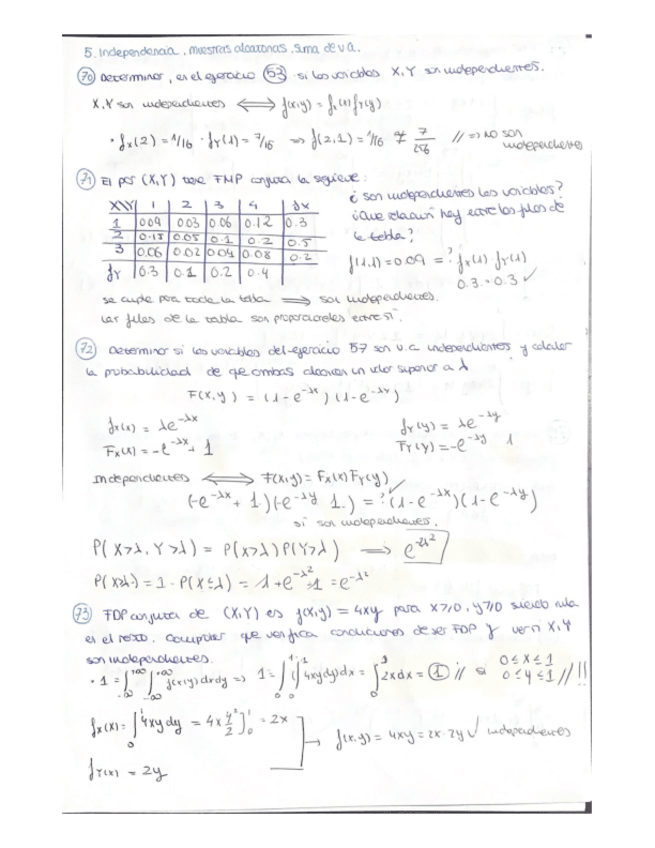 5. Independencia, muestras aleatorias, suma de v.a.
70 Determinar, en el ejercicio 53 si las variables X, Y son independientes.
X, Y son independientes ⟺ f(x,y) = fx(x) fy(y)
· fx(2) = 1/16 · fY(1) = 7/16 ⇒ f(2,1) = 1/16 ≠ 7/256 // ⇒ no son independientes
71 El par (X,Y) tiene FMP conjunta la siguiente:
¿son independientes las variables?
¿Que relación hay entre las filas de
la tabla?
X\Y 1 2 3 4 fx
1 0.09 0.03 0.06 0.12 0.3
2 0.15 0.05 0.1 0.2 0.5
3 0.06 0.02 0.04 0.08 0.2
fY 0.3 0.1 0.2 0.4
f(1,1) = 0.09 =? fx(1) · fY(1)
0.3 · 0.3 ✓
se cumple para toda la tabla ⟹ son independientes.
Las filas de la tabla son proporcionales entre sí.
72 Determinar si las variables del ejercicio 57 son v.a independientes y calcular
la probabilidad de que ambas alcancen un valor superior a λ
F(x,y) = (1-e^-λx)(1-e^-λy)
fx(x) = λe^-λx fY(y) = λe^-λy
Fx(x) = -e^-λx + 1 FY(y) = -e^-λy 1
Independientes ⟺ F(x,y) = Fx(x) FY(y)
(-e^-λx + 1)(-e^-λy 1.) =? (1-e^-λx)(1-e^-λy) ✓
si son independientes.
P(X>λ, Y>λ) = P(X>λ) P(Y>λ) ⟹ e^-2λ²
P(X>λ) = 1 - P(X≤λ) = 1 + e^-λ² - 1 = e^-λ²
73 FDP conjunta de (X,Y) es f(x,y) = 4xy para x≥0, y≥0 siendo nula
en el resto. Comprobar que verifica condiciones de ser FDP y ver si X, Y
son independientes.
· 1 = ∫-∞+∞ ∫-∞+∞ f(x,y) dx dy ⇒ 1 = ∫01 (∫01 4xy dy) dx = ∫01 2x dx = 1 // si 0≤x≤1 0≤y≤1 //!!
fx(x) = ∫01 4xy dy = 4x y²/2 ]01 = 2x
→ f(x,y) = 4xy = 2x · 2y ✓ independientes
fY(x) = 2y